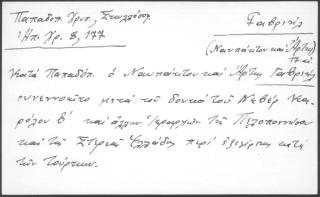 Παπαδόπ. Χρυσ., Σταχυόπου
Ἠπ. Χρ. 8, 177
Γαβριήλ
(Ναυπάκτου καὶ Ἄρτης)
Κατὰ Παπαδόπ. ὁ Ναυπάκτου καὶ Ἄρτης Γαβριὴλ
συνεννοεῖτο μετὰ τοῦ δουκὸς τοῦ Νεβὲρ Κα-
ρόλου β' καὶ ἄλλων Ἱεραρχῶν τῆς Πελοποννήσου
καὶ τῆς Στερεᾶς Ἑλλάδος περὶ ἐξεγέρσεως κατὰ
τῶν Τούρκων.